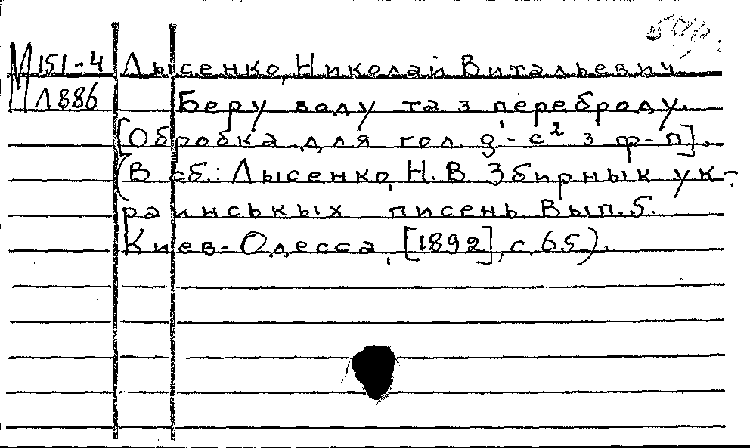 М 151-4 Лысенко, Николай Витальевич
Л 886 Беру воду та з переброду.
[Обробка для гол. g'-c² з ф-п].
(В сб.: Лысенко, Н. В. Збирнык ук-
раинськых писень. Вып. 5.
Киев-Одесса, [1892], с. 65).